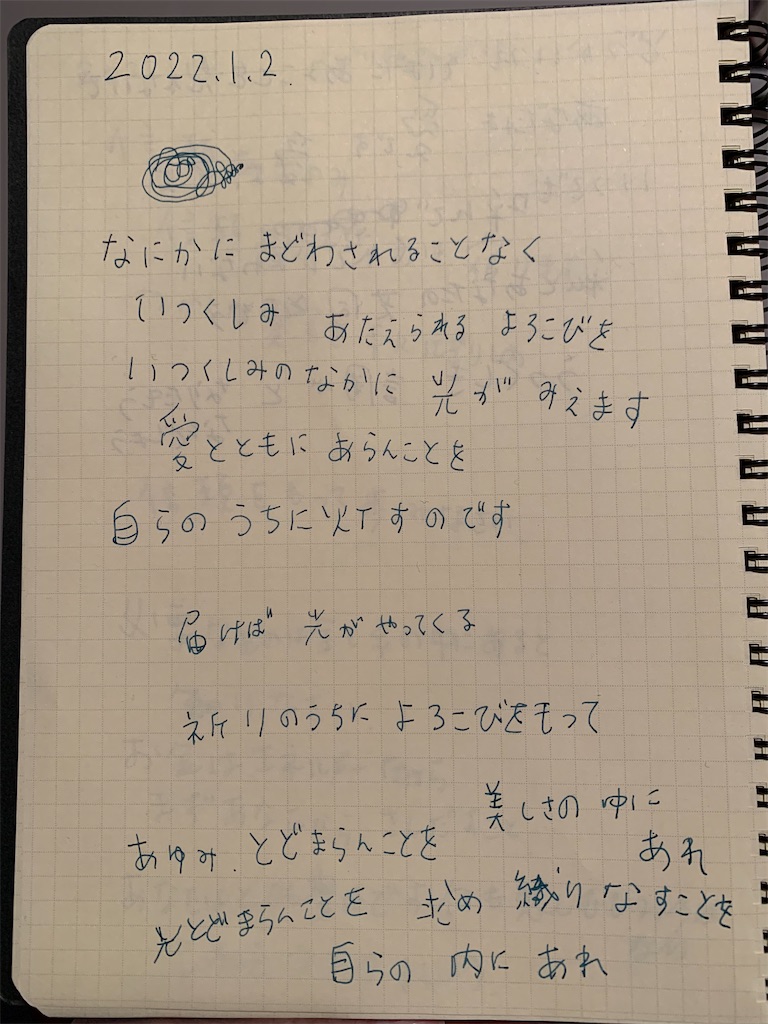 2022.1.2.
なにかに まどわされることなく
いつくしみ あたえられる よろこびを
いつくしみのなかに 光が みえます
愛とともに あらんことを
自らの うちに灯すのです
届けば 光がやってくる
祈りのうちに よろこびをもって
美しさの中に
あゆみ、とどまらんことを
あれ
光とどまらんことを 求め 織りなすことを
自らの 内に あれ